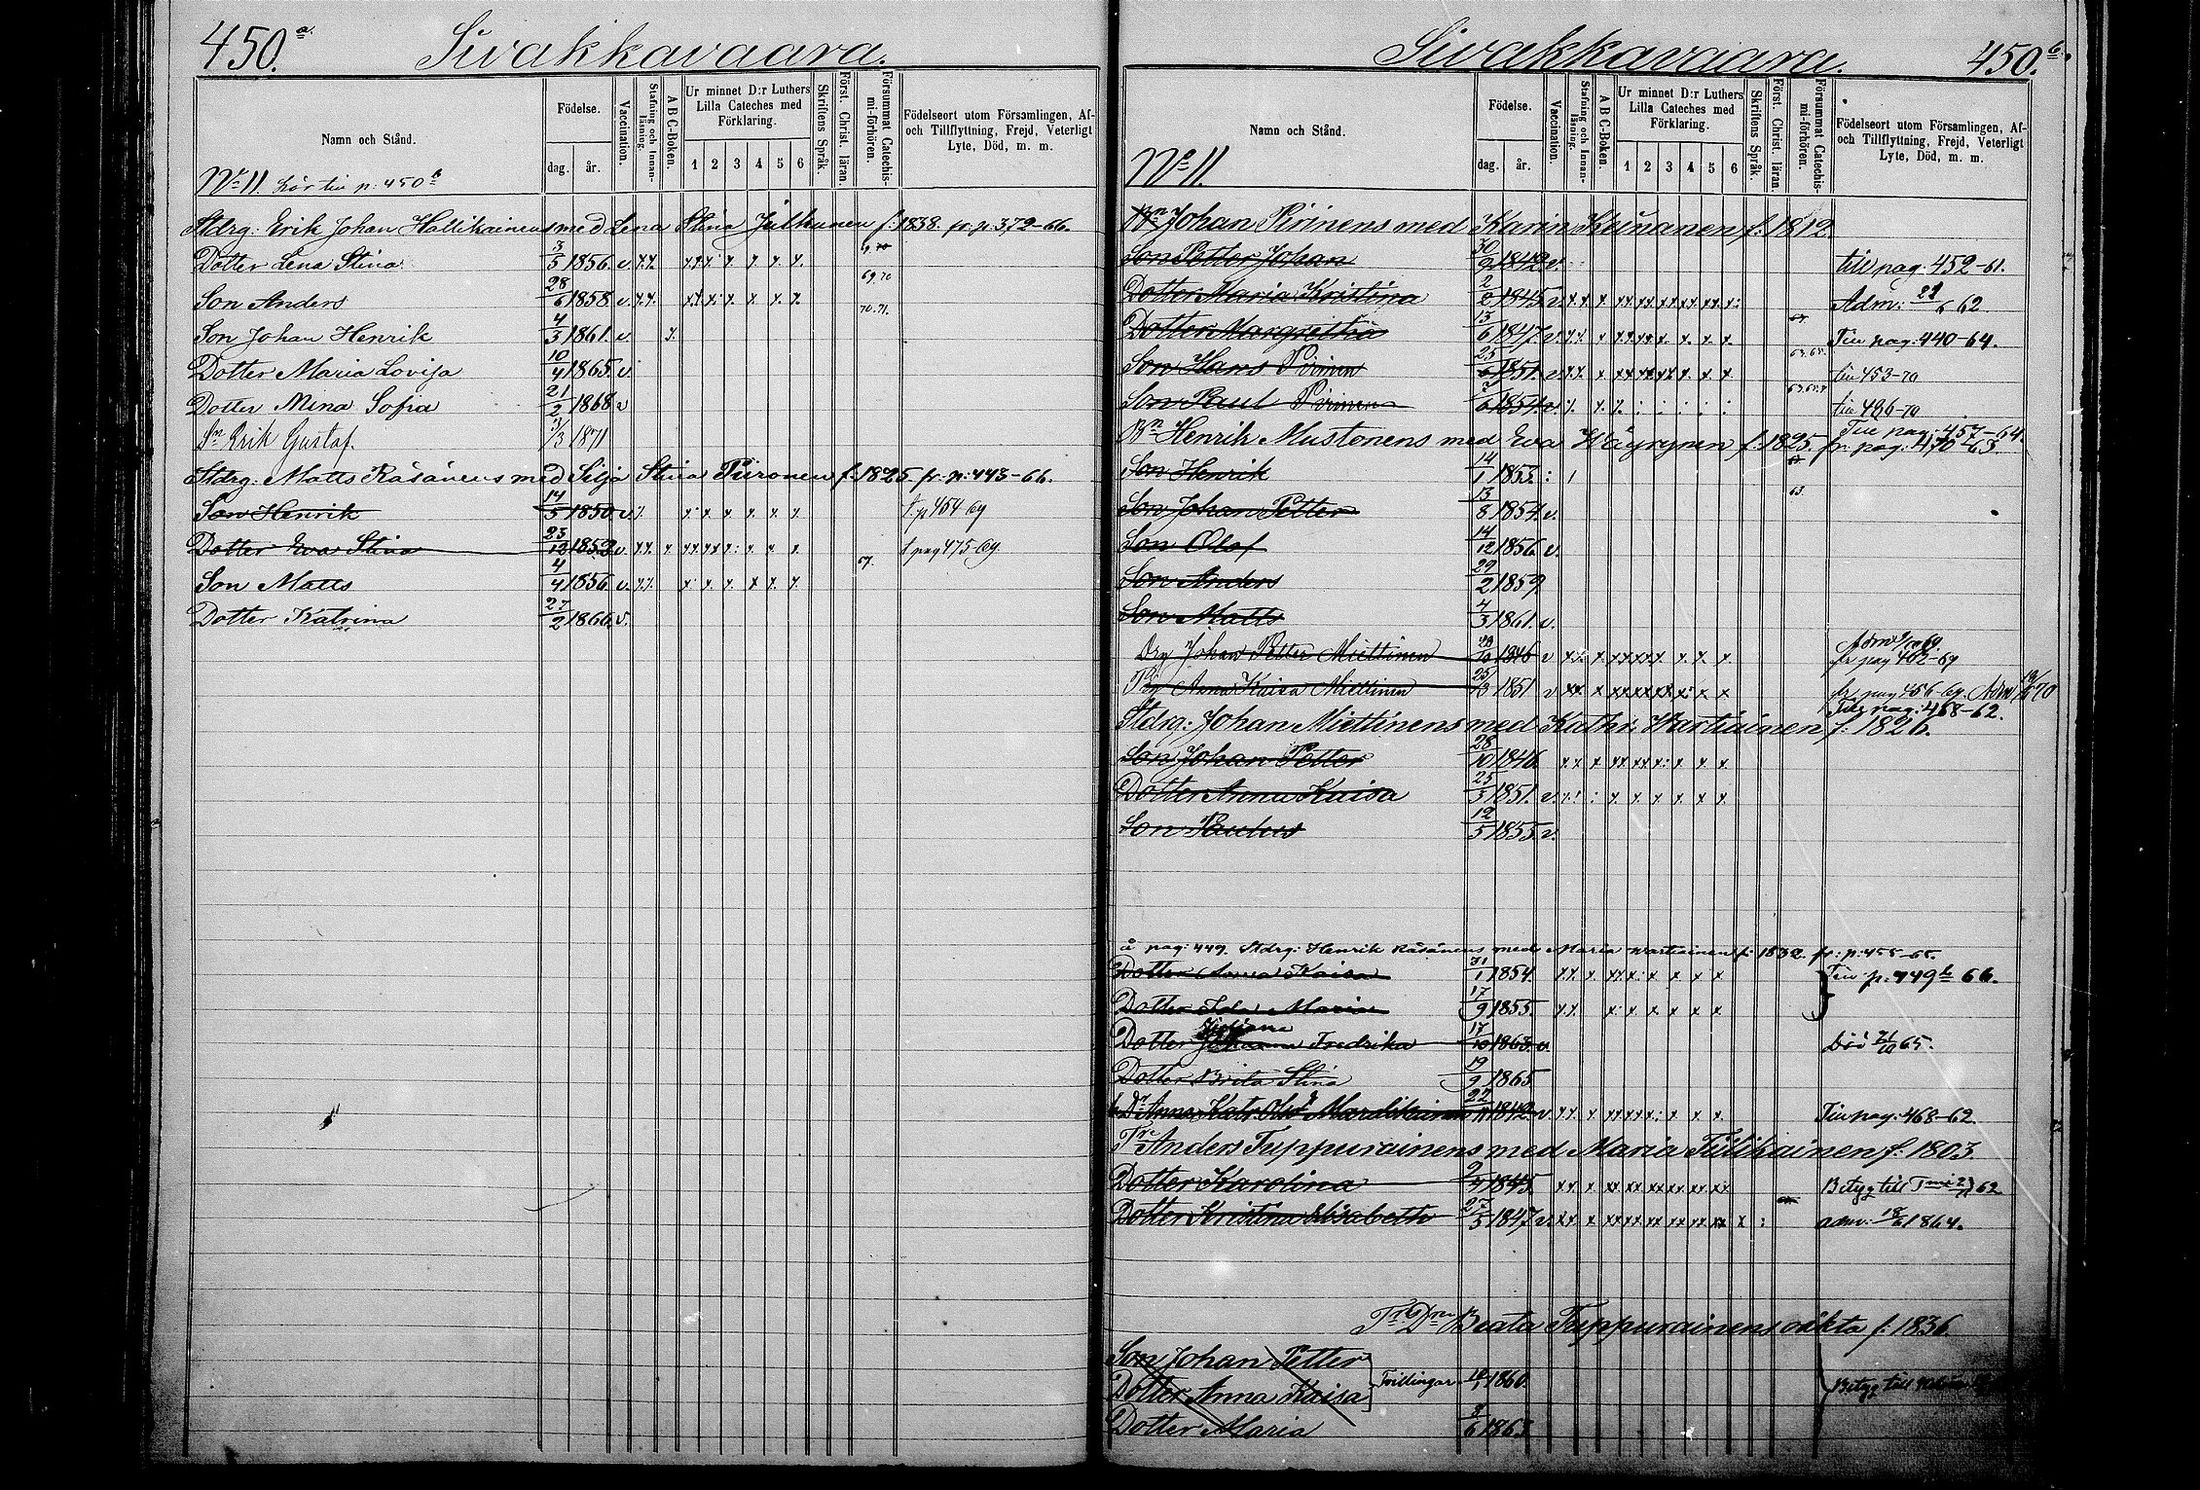 450.a
Sivakkavaara.
Namn och Stånd.
Födelse.
dag.
år.
Vaccination.
Stafning och Innanläsning.
A B C-Boken.
Ur minnet D:r Luthers Lilla Cateches med Förklaring.
1 2 3 4 5 6
Skriftens Språk.
Först. Christ. läran.
Försummat Catechismi-förhören.
Födelseort utom Församlingen, Af- och Tillflyttning, Frejd, Veterligt Lyte, Död, m. m.
No 11. hör till p: 450 b
Stdrg: Erik Johan Hallikainens med Lena Stina Julkunen f: 1838. fr. p: 372-66.
Dotter Lena Stina 3/5 1856. v. x x. x x x x x x. 69. 70
Son Anders 28/6 1858. v. x x. x x x x x x 69. 70
Son Johan Henrik 4/3 1861. v. x. 70. 71.
Dotter Maria Lovisa 10/4 1865. v.
Dotter Mina Sofia 21/2 1868 v
Sn Erik Gustaf. /3 1871
Stdrg: Matts Räsänens med Silja Stina Turonen f: 1825. fr: p: 443-66.
Son Henrik 14/5 1850 v. x. x x x x x x t. p 464-69
Dotter Eva Stina 23/12 1852 v. x x. x x x x x x x x t pag 475-69.
Son Matts 4/4 1856 v. x x. x x. x. x x. x 67.
Dotter Katrina 27/2 1866. v.
Sivakkavaara.
450.b
Namn och Stånd.
Födelse.
dag.
år.
Vaccination.
Stafning och Innanläsning.
A B C-Boken.
Ur minnet D:r Luthers Lilla Cateches med Förklaring.
1 2 3 4 5 6
Skriftens Språk.
Först. Christ. läran.
Försummat Catechismi-förhören.
Födelseort utom Församlingen, Af- och Tillflyttning, Frejd, Veterligt Lyte, Död, m. m.
No 11.
Bn Johan Pirinens med Karin Keinänen f: 1812.
Son Petter Johan 30/9 1842 v. till pag: 452-61.
Dotter Maria Kristina 2/2 1845 v. x x x x x x x x x x x x Adm: 21/6 62
Dotter Margretha 13/6 1847 v. x x x x x x x x. x. x. x Till pag: 440-64.
Son Hans Pirinen 25/6 1851 v. x x. x x x x x x x x x till 453-70
Son Paul Pirinen 7/6 1854 v. x. x. x. till 496-70
Bn Henrik Mustonens med Eva Häyrynen f: 1825. fr. pag: 470-63.
Till pag: 457-64.
Son Henrik 14/1 1853
Son Johan Petter 13/8 1854. v. 63.
Son Olof 14/12 1856 v.
Son Anders 29/2 1859
Son Matts 4/3 1861. v.
Drg Johan Petter Miettinen 28/10 1846 v x x. x. x x x x x. x. x. x. fr pag 462-69
Pig Anna Kaisa Miettinen 25/3 1851 v. x x x x x x x x x x x fr pag 456-69.
Till pag: 468-62.
Stdrg: Johan Miettinens med Kathr: Wartiainen f: 1826.
Son Johan Petter 28/10 1846. x x x x x x x x x x x
Dotter Anna Kaisa 25/3 1851. v. x x x x x x
Son Paulus 12/5 1855 v.
å pag: 449. Stdrg: Henrik Räsänens med Maria Wartiainen f: 1832. fr: p: 455-65.
Dotter Anna Kaisa 31/1 1854. x x x x x x x x x x Till p: 449 b 66.
Dotter Ida Maria 17/9 1855. x x x x x x x x
Dotter Juliana Fredrika 17/10 1863. v. Död 65.
Dotter Brita Stina 19/9 1865
Anna Katr. Mardikainen 22/11 1842 v x x x x x x x x x x. Till pag: 468-62.
Anders Tuppurainens med Maria Tülikainen f: 1803.
Dotter Karolina 9/4 1845. x x x x x x x x x x x Betyg till 62
Dotter Kristina Elisabeth 27/5 1847 v. x x x x x x x x x x x x x adm: 18/6 1864.
Beata Tuppurainens oäkta f: 1836.
Son Johan Petter
Dotter Anna Kaisa
Tvillingar 1860.
Dotter Maria 8/6 1863
Betyg till